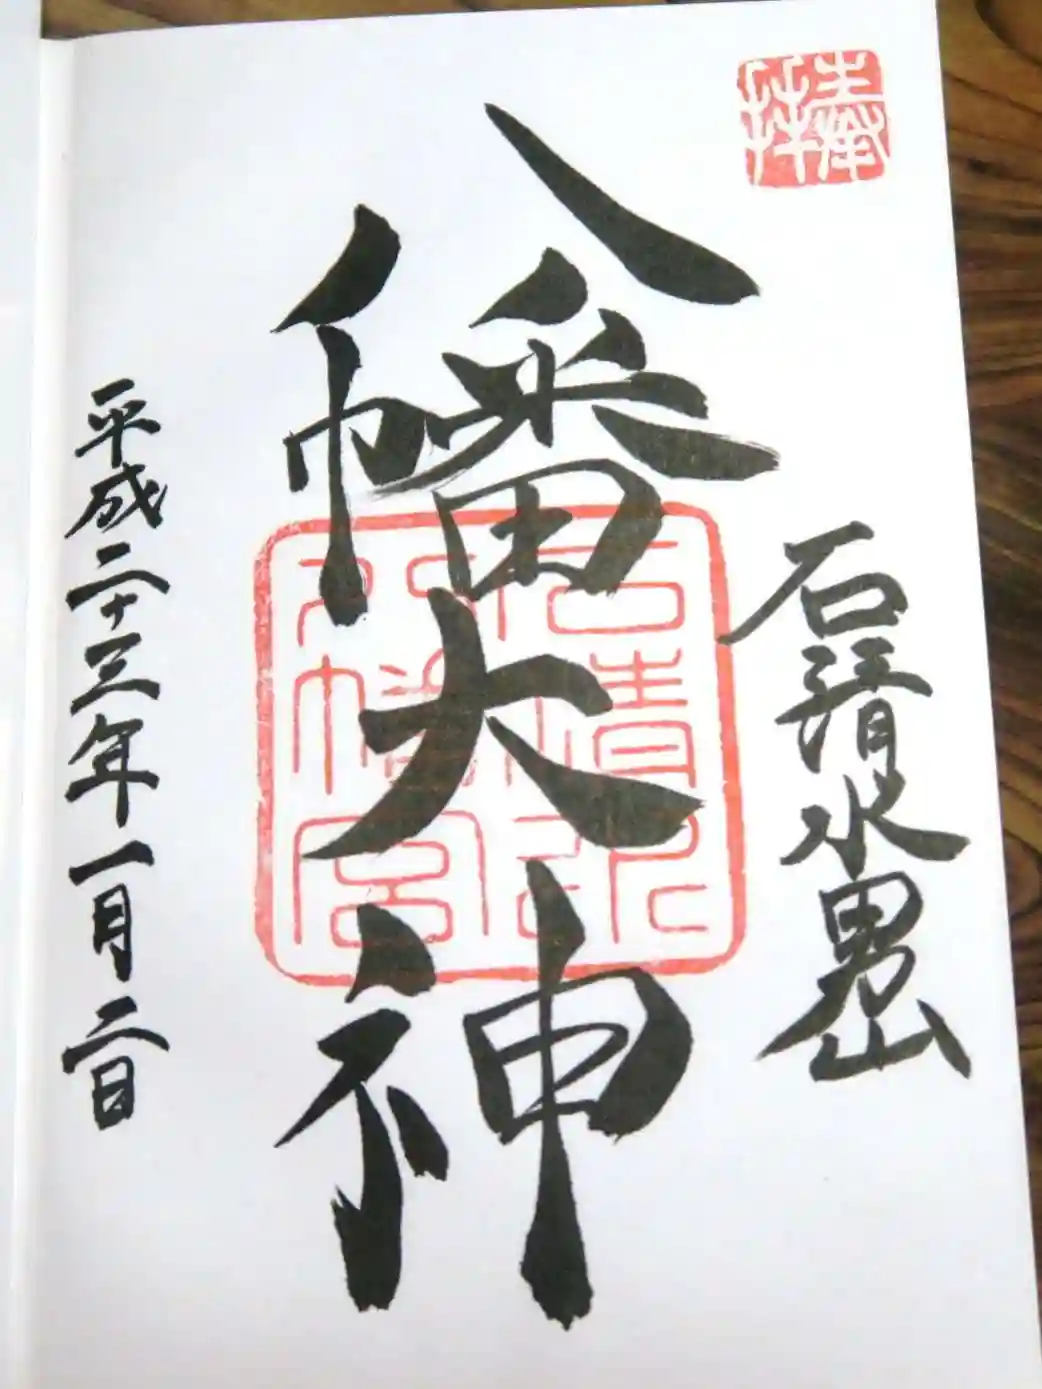 奉拝
石清水男山
八幡大神
石清水
八幡宮
平成二十三年一月二日